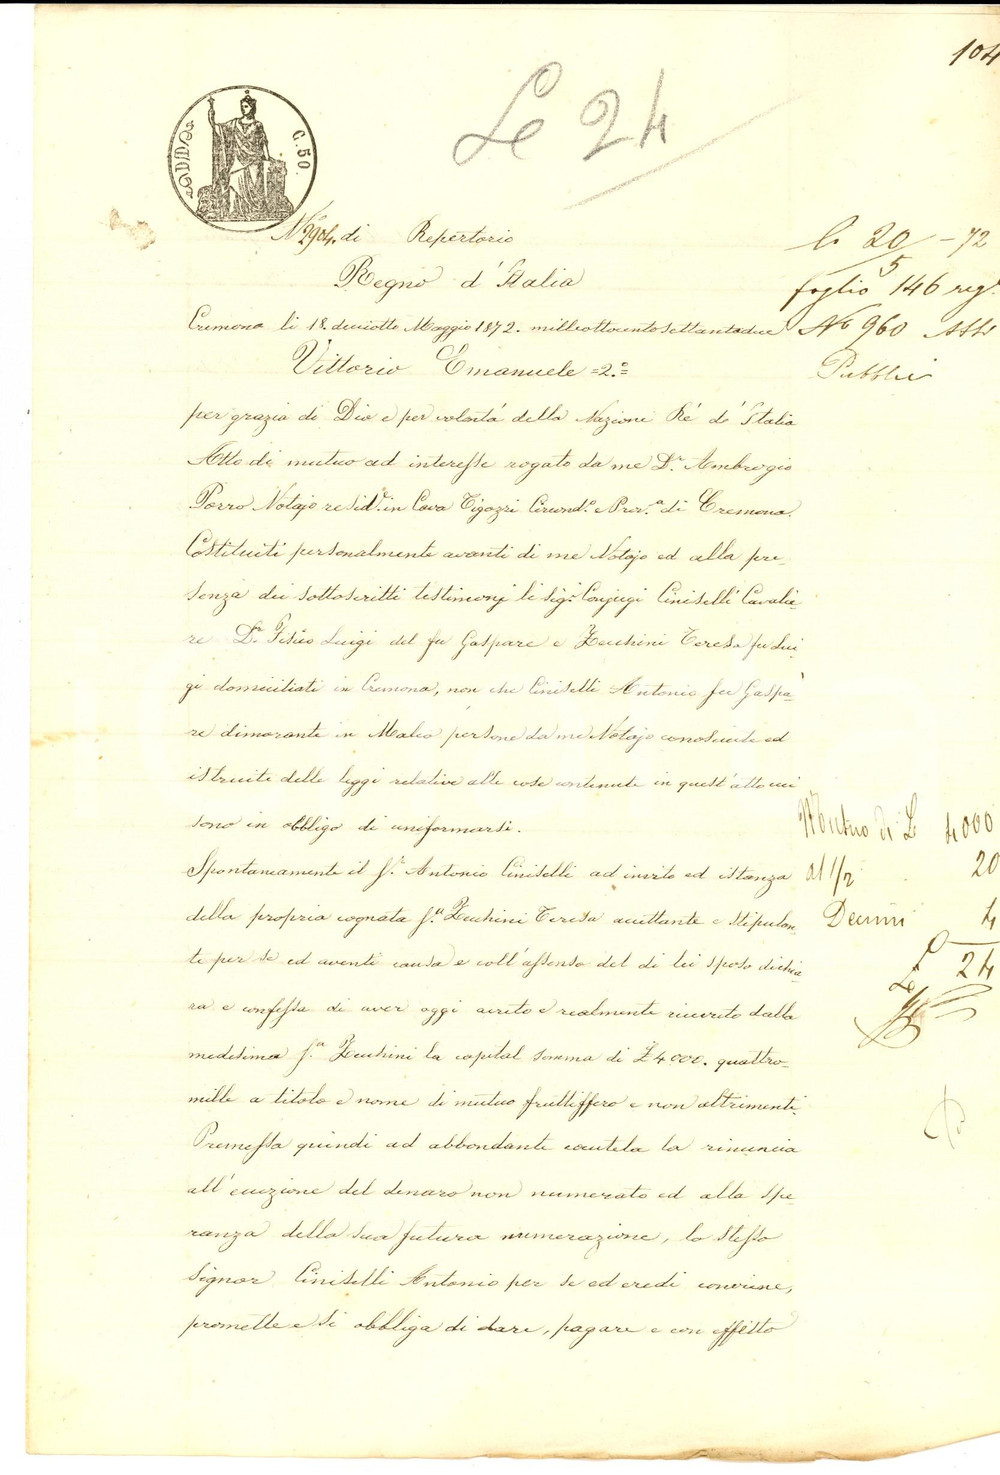 104
Le 24
C. 50.
N° 2904. di Repertorio
Regno d'Italia
Cremona li 18. dieciotto Maggio 1872. milleottocentosettantadue
Vittorio Emanuele =2.°=
per grazia di Dio e per volontà della Nazione Ré d'Italia
Atto di mutuo ad interesse rogato da me Dr. Ambrogio
Porro Notajo resid. in Cava Tigozzi Circond.° e Prov.a di Cremona.
Costituiti personalmente avanti di me Notajo ed alla pre-
senza dei sottoscritti testimonj li sig.i Conjugi Ciniselli Cavalie-
re Dr. Fisico Luigi del fu Gaspare e Zecchini Teresa fu Lui-
gi domiciliati in Cremona, non che Ciniselli Antonio fu Gaspa-
re dimorante in Maleo persone da me Notajo conosciute ed
istruite delle leggi relative alle cose contenute in quest'atto cui
sono in obbligo di uniformarsi.
Spontaneamente il S.r Antonio Ciniselli ad invito ed istanza
della propria cognata S.a Zecchini Teresa accettante e stipulan-
te per se ed aventi causa e coll'assenso del di lei sposo dichia-
ra e confessa di aver oggi avuto e realmente ricevuto dalla
medesima S.a Zecchini la capital somma di £ 4000. quattro-
mille a titolo e nome di mutuo fruttiffero e non altrimenti.
Premessa quindi ad abbondante cautela la rinuncia
all'eccezione del denaro non numerato ed alla spe-
ranza della sua futura numerazione, lo stesso
Signor Ciniselli Antonio per se ed eredi conviene,
promette e si obbliga di dare, pagare e con effetto
li 20/5 - 72
foglio 146 reg.°
N° 960 Atti
Pubblici
Mutuo di £ 4000
al 1/2 20
Decimi 4
£ 24